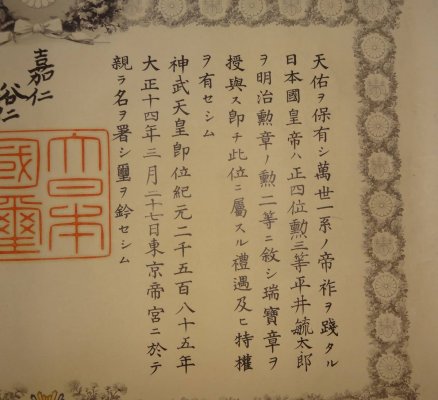 天佑ヲ保有シ萬世一系ノ帝祚ヲ踐タル
日本國皇帝ハ正四位勲三等平井毓太郎
ヲ明治勲章ノ勲二等ニ敍シ瑞寶章ヲ
授與ス即チ此位ニ屬スル禮遇及ヒ特權
ヲ有セシム
神武天皇即位紀元二千五百八十五年
大正十四年三月二十七日東京帝宮ニ於テ
親ラ名ヲ署シ璽ヲ鈐セシム
嘉仁
大日本
國璽